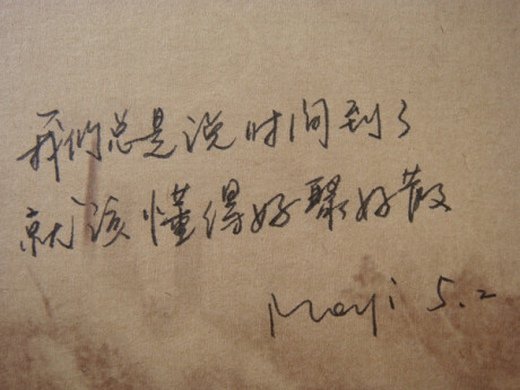 我们总是说时间到了
就该懂得好聚好散
5.2